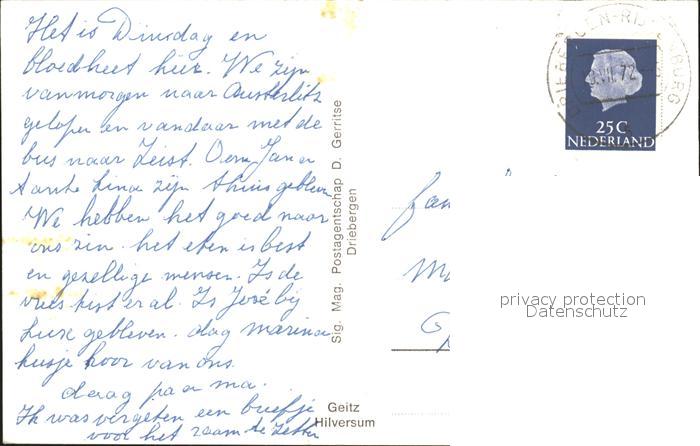 Het is Dinsdag en
bloedheet hier. We zijn
vanmorgen naar Austerlitz
gelopen en vandaar met de
bus naar Zeist. Oom Jan en
tante Lina zijn thuis gebleven
We hebben het goed naar
ons zin. het eten is best
en gezellige mensen. Is de
vries kist er al. Is José bij
Luxe gebleven. dag marina
kusje hoor van ons.
daag pa en ma.
Ik was vergeten een briefje
voor het raam te zetten
Sig. Mag. Postagentschap D. Gerritse
Driebergen
Geitz
Hilversum
DRIEBERGEN-RIJSENBURG
VII.72
25C
NEDERLAND
fam
privacy protection
Datenschutz